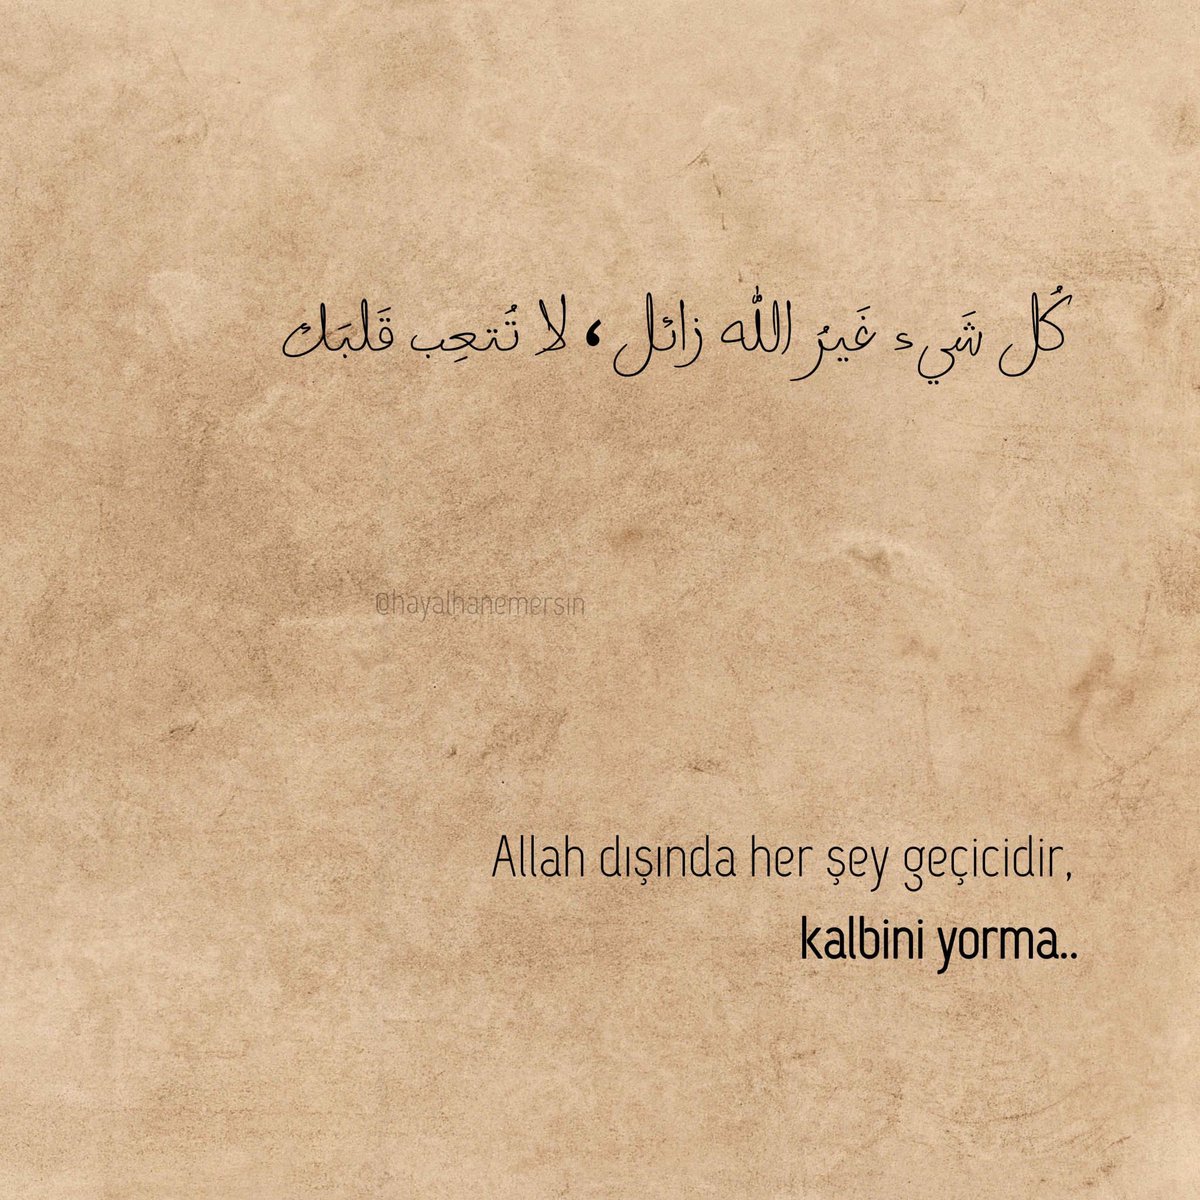 كُل شَيء غَيرُ الله زائل ، لا تُتعِب قَلبَك
@hayalhanemersin
Allah dışında her şey geçicidir,
kalbini yorma..